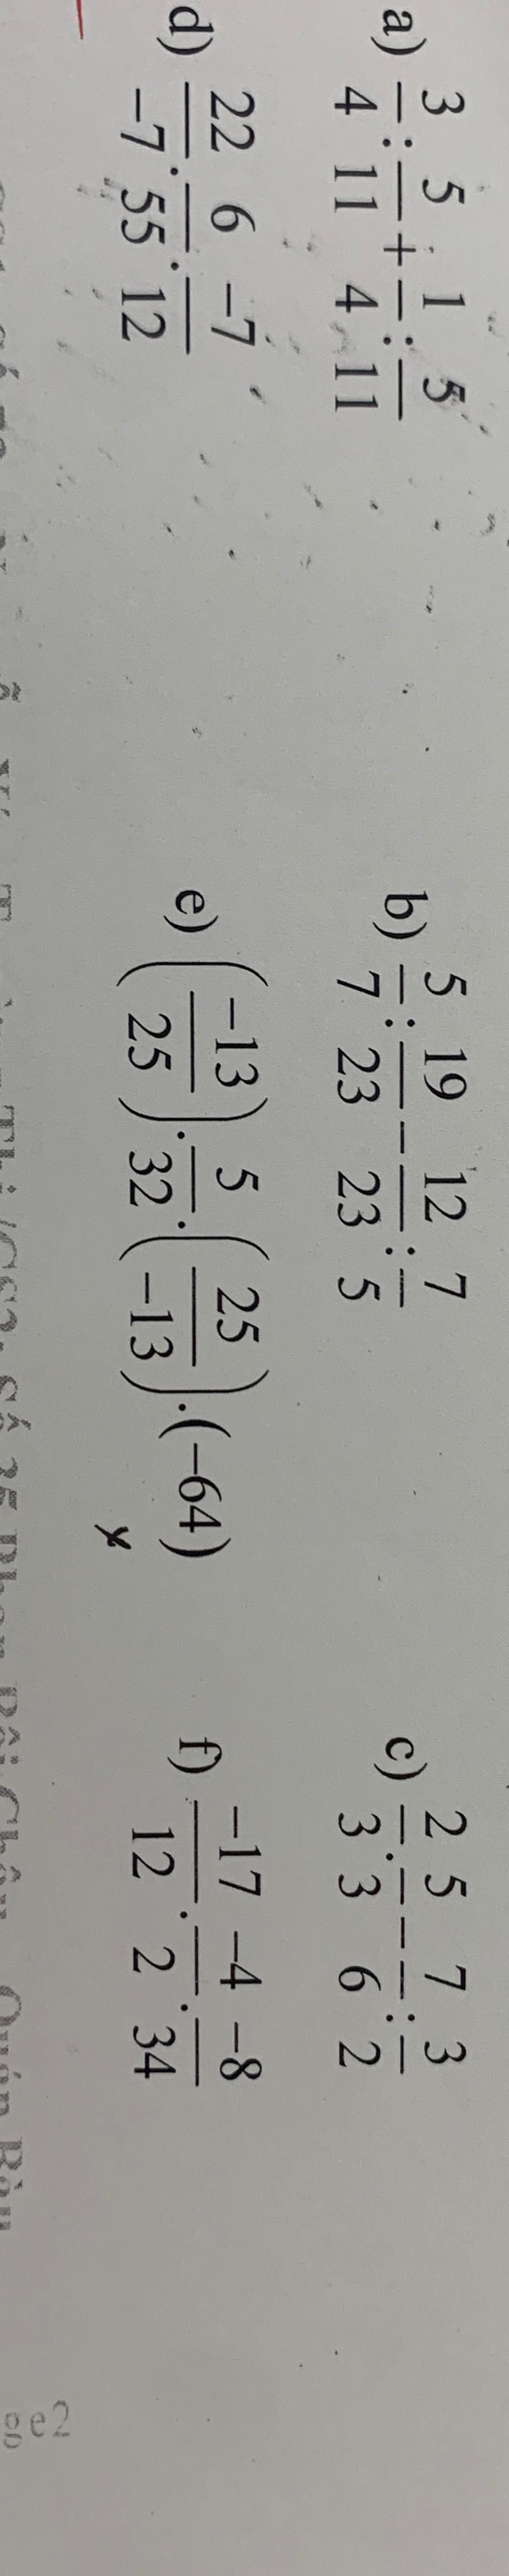 a) 3/4 : 5/11 + 1/4 : 5/11 b) 5/7 : 19/23 − 12/23 : 7/5 c) 2/3 . 5/3 − 7/6 : 3/2
d) 22/−7 . 6/55 . −7/12 e) (−13/25) . 5/32 . (25/−13) . (−64) f) −17/12 . −4/2 . −8/34
ge2